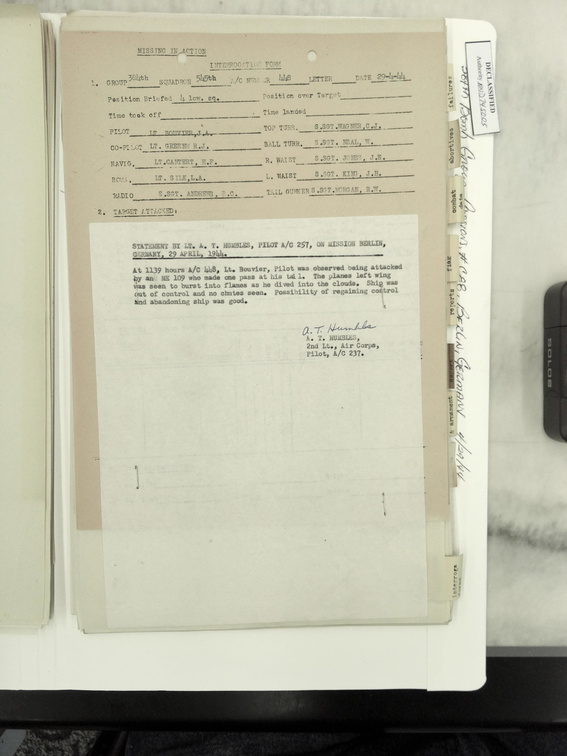 MISSING IN ACTION
INTERROGATION FORM
1. GROUP 384th SQUADRON 545th A/C NUMBER 448 LETTER DATE 29-4-44
Position Briefed 4 low. sq. Position over Target
Time took off Time landed
PILOT LT. BOUVIER, J.A. TOP TURR. S.SGT.WAGNER, C.J.
CO-PILOT LT. GREENE R.J. BALL TURR. S.SGT. NEAL, W.
NAVIG. H.P. R. WAIST S.SGT. JONES, J.E.
LT. L.A. L. WAIST S.SGT. KING, J.H.
RADIO S.SGT. ANDREWS, D.C. TAIL GUNNER S.SGT.MORGAN, R.W.
2. TARGET ATTACKED:
STATEMENT BY LT. A. T. HUMBLES, PILOT A/C 257, ON MISSION BERLIN,
GERMANY, 29 APRIL, 1944.
At 1139 hours A/C 448, Lt. Bouvier, Pilot was observed being attacked
by an ME 109 who made one pass at his tail. The planes left wing
was seen to burst into flames as he dived into the clouds. Ship was
out of control and no chutes seen. Possibility of regaining control
and abandoning ship was good.
A.T. Humbles
A. T. HUMBLES,
2nd Lt., Air Corps,
Pilot, A/C 237.
DECLASSIFIED
Authority NND 745005
384th Bomb Group Berlin, Germany 4/29/44
failures
abortives
combat
data
flak
reports
interrog
SOLOS